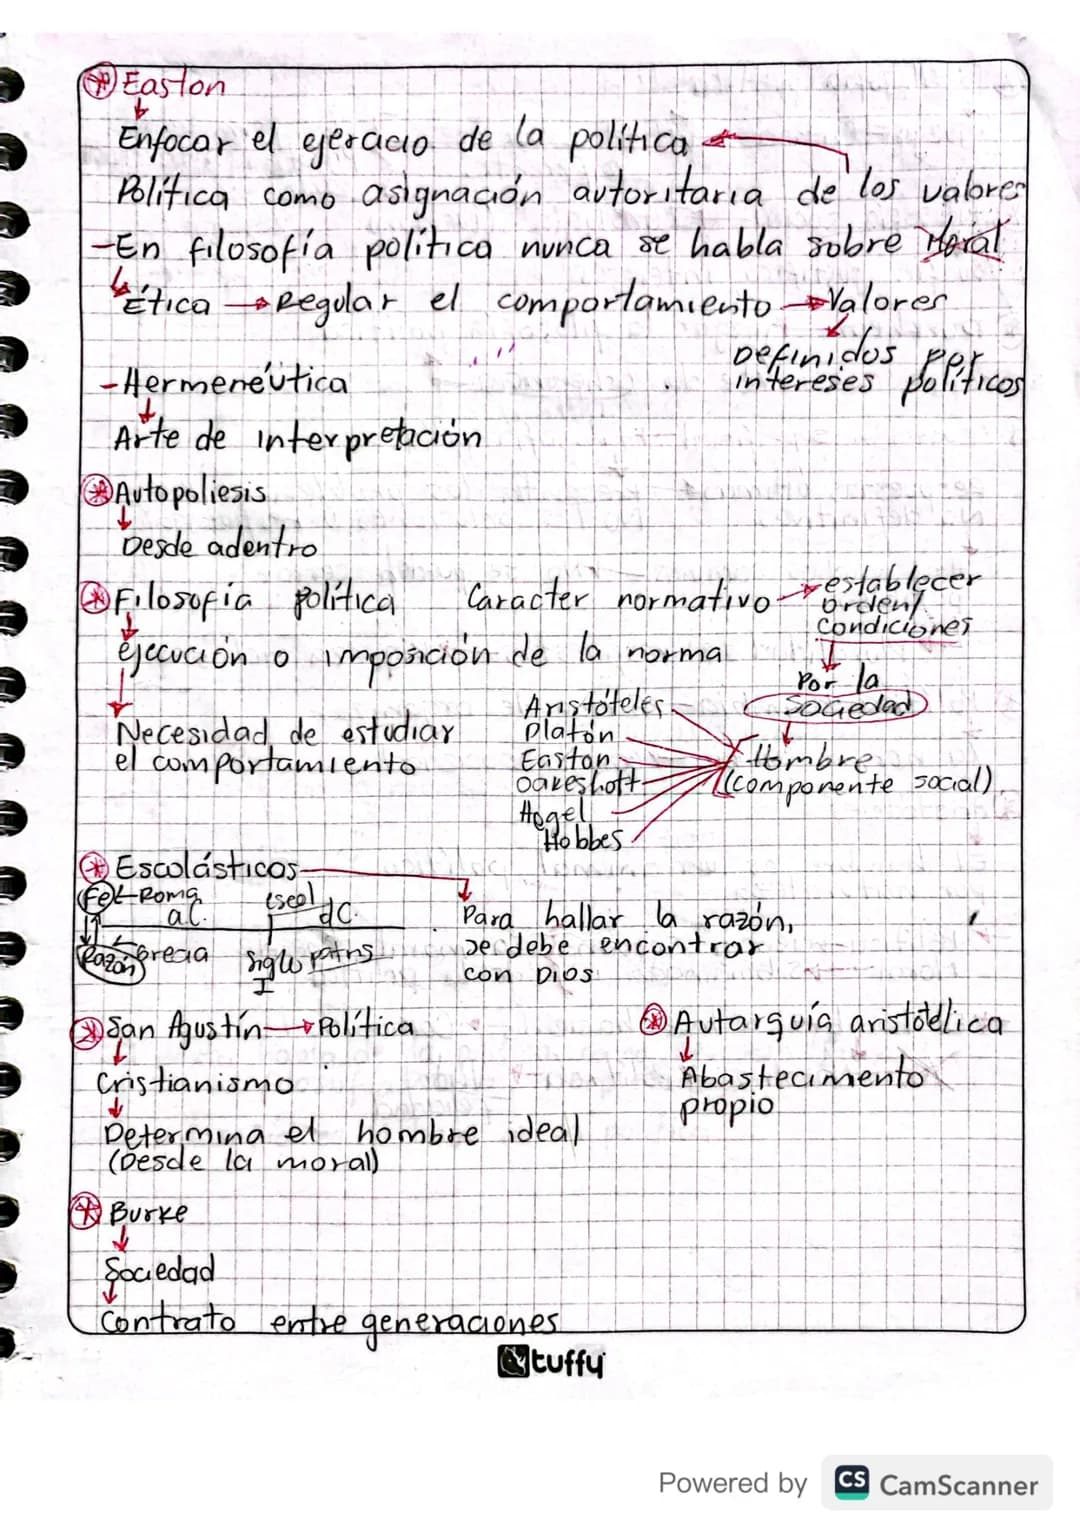 Easton
Enfocar el ejercicio de la política
Política como asignación autoritaria de los valores
-En filosofía política nunca se habla sobre Moral
Ética → Regular el comportamiento → Valores
Definidos por
intereses políticos
-Hermeneútica
Arte de interpretación
Autopoliesis
Desde adentro
Filosofía política
Caracter normativo → establecer
orden/
condiciones
ejecución o imposición de la norma
Por la
Sociedad
Necesidad de estudiar
el comportamiento
Aristóteles
Platón
Easton
Oakeshott
Hegel
Hobbes
Hombre
(componente social)
Escolásticos
Fe Roma
a.C.
d.C.
Razón Grecia
Siglo
I
Para hallar la razón,
se debe encontrar
con Dios
San Agustín → Política
Cristianismo
Determina el hombre ideal
(Desde la moral)
Autarquía aristotélica
Abastecimento
propio
Burke
Sociedad
Contrato entre generaciones
tuffy
Powered by CS CamScanner